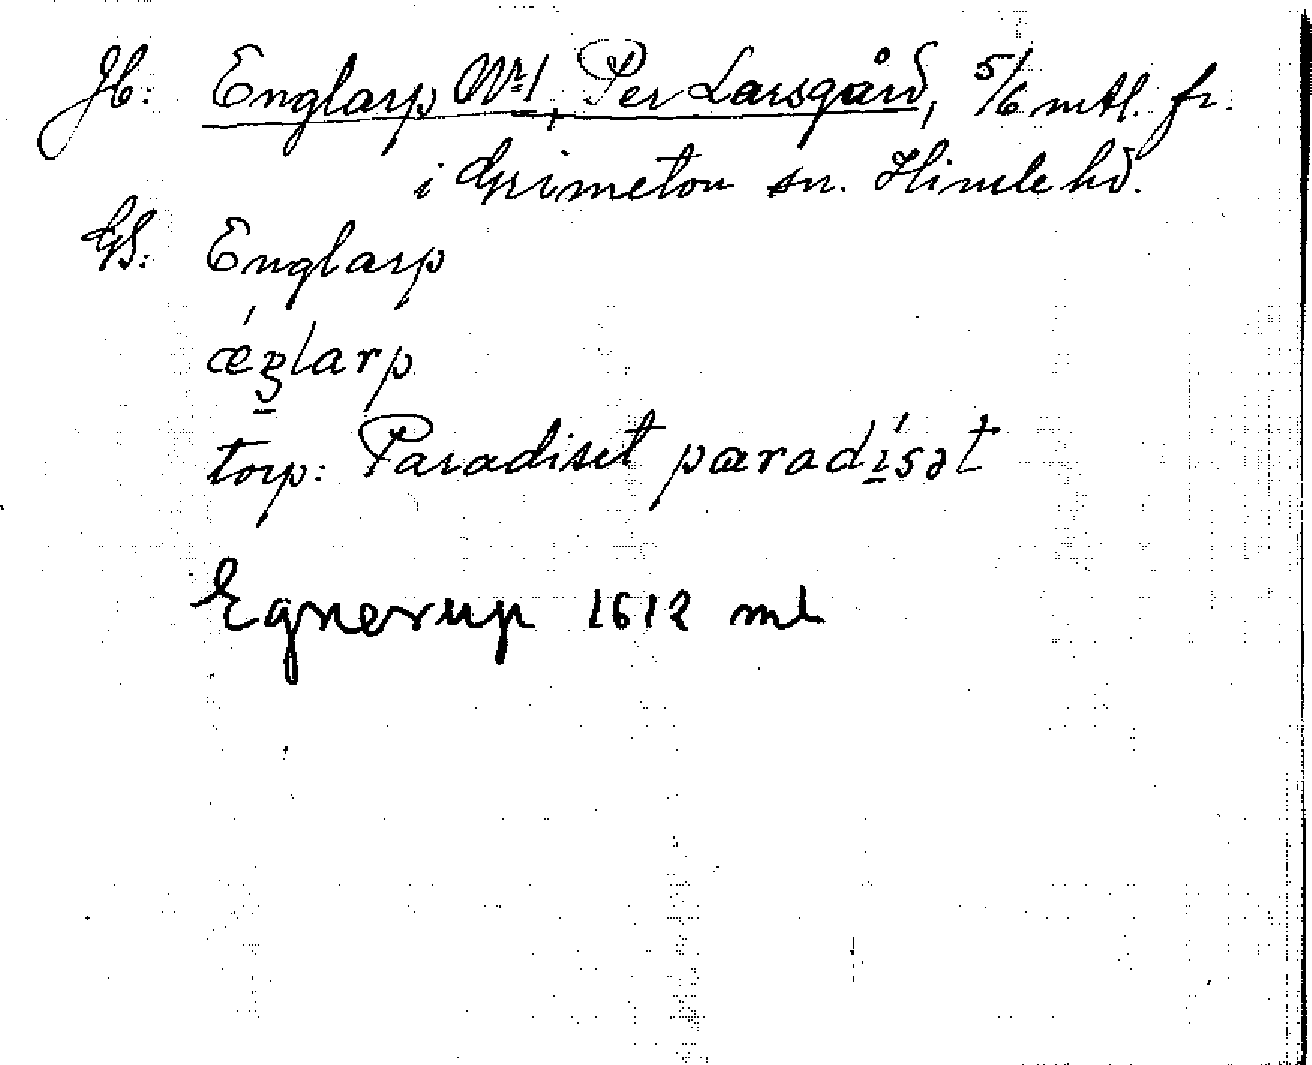 Jb: Englarp Nr 1, Per Larsgård, 5/6 mtl. fr.
i Grimeton sn. Himle hd.
GS: Englarp
ǽŋlarp
torp: Paradiset paradísət
Egnerup 1612 ml